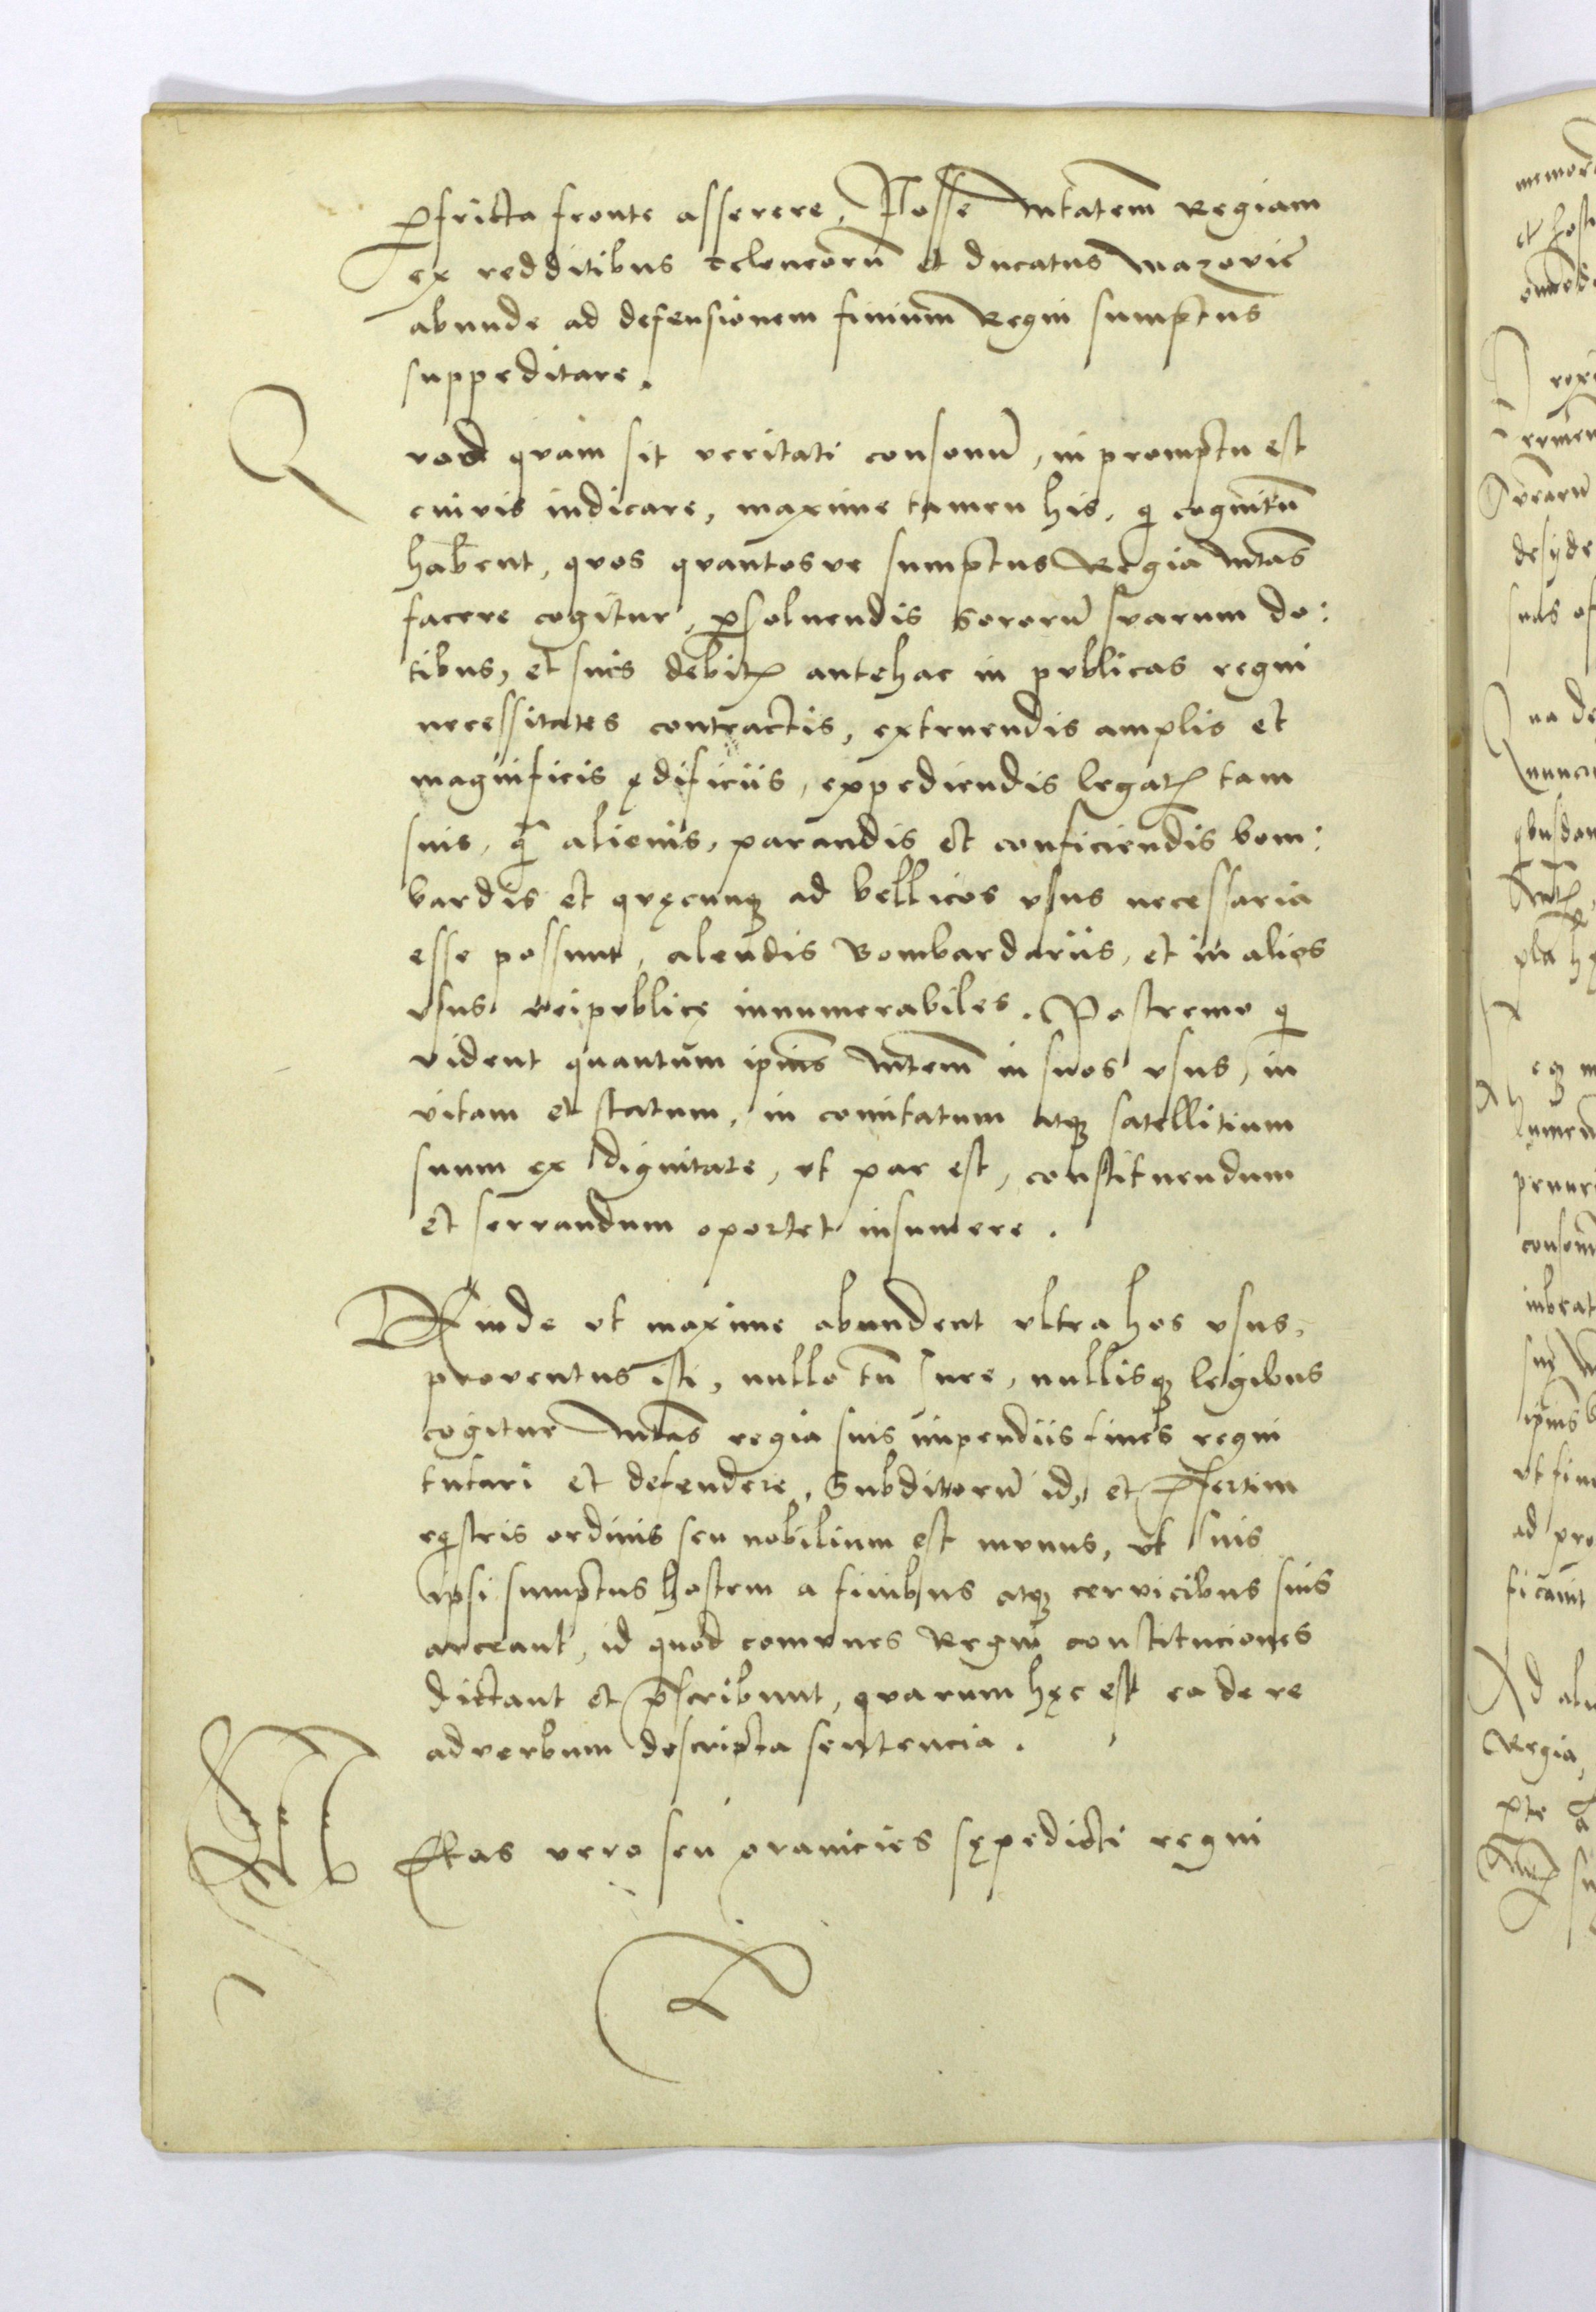 ꝑfricta fronte asserere, Posse Mtatem Regiam
ex redditibus teloneorū et ducatus Mazovię
abunde ad defensionem finium Regni sumptus
suppeditare.
Qvod qvam sit veritati consonū, in promptu est
cuivis iudicare, maxime tamen his, qi cognitū
habent, qvos qvantosve sumptus Regia Mtas
facere cogitur, ꝑsoluendis Sororū svarum do:
tibus, et suis debitꝭ antehac in pvblicas regni
necessitates contractis, extruendis amplis et
magnificis ędificiis, expediendis legatꝭ tam
suis, qͣ alienis, parandis et conficiendis bom:
bardis et qvęcunqꝫ ad bellicos vsus necessaria
esse possunt, alendis Bombardariis, et in alios
vsus reipvblicę innumerabiles. Postremo qi
vident quantum ipius Mtem in suos vsus, in
vitam et statum, in comitatum atqꝫ satellitium
suum ex dignitate, vt par est, constituendum
et servandum oportet insumere.
Deinde vt maxime abundent vltra hos vsus,
proventus isti, nullo tn̄ Iure, nullisqꝫ legibus
cogitur Mtas regia suis impendiis fines regni
tutari et defendere, Subditorū id, et p̄sertim
eqistris ordinis seu nobilium est mvnus, vt suis
ipsi sumptus hostem a finibus atqꝫ cervicibus suis
arceant, id quod comvnes Regni constituciones
dictant et p̄scribunt, qvarum hęc est ea de re
ad verbum descripta sentencia.
Metas vero seu granicies sępedicti regni
memor
et hosti
desyde
Ad ali
Regia,